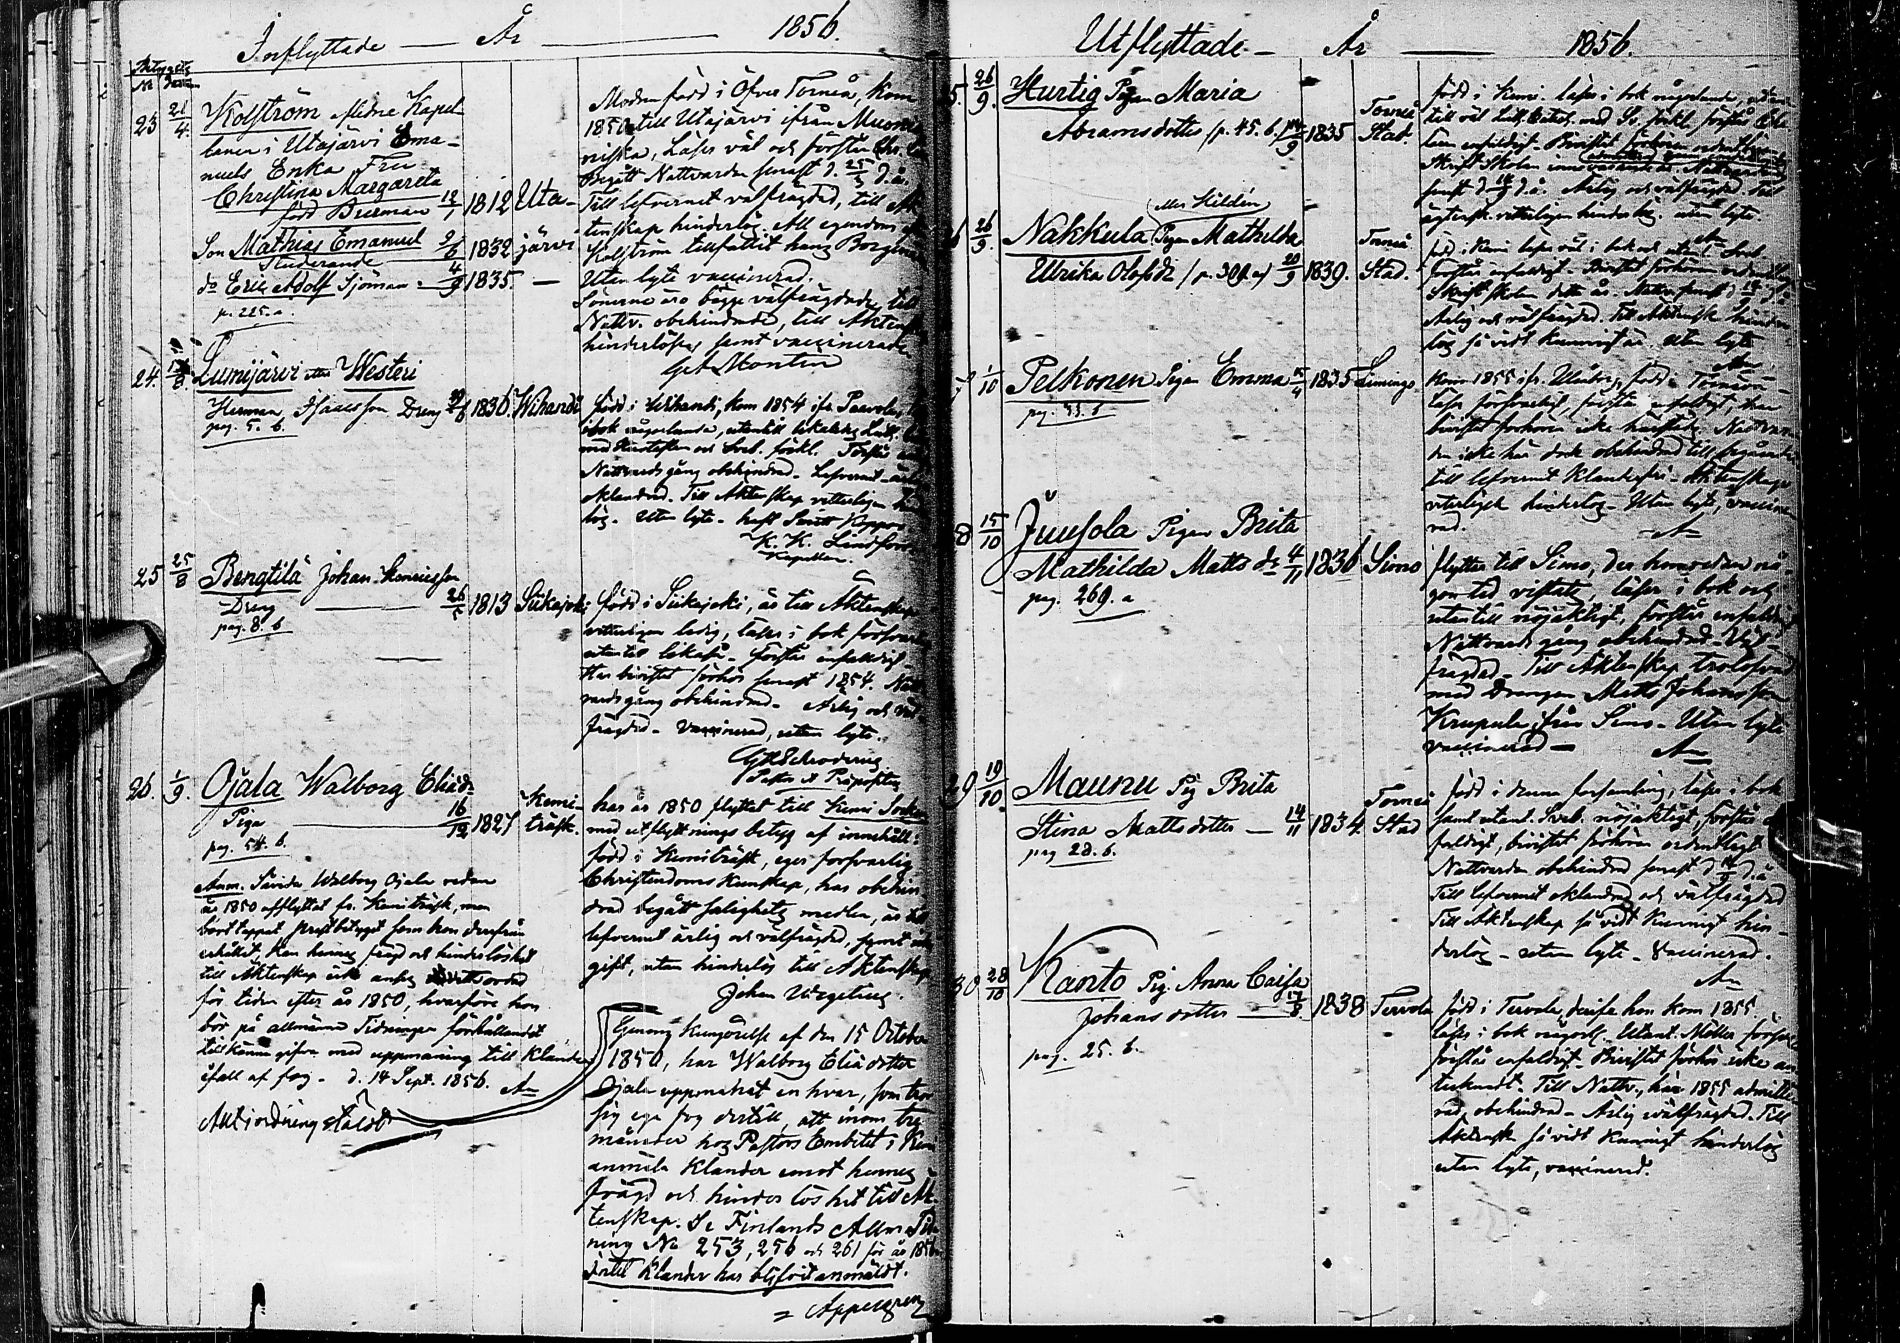 Inflyttade — År — 1856.
Betygets
No Datum
23 21/4. Kolström Aflidne Kapel-
lanen i Utajärvi Ema-
nuels Enka Fru
Christina Margareta
född Bierman 12/1 1812 Uta-
Son Mathias Emanuel 2/6 1832 järvi
Studerande
do Eric Adolf Sjöman 4/9 1835. —
p. 225. a.
Modren född i Öfver Torneå, kom
1850 till Utajärvi ifrån Muonio
niska, Läser väl och förstår
Begått Nattvarden senast d. 25/3 d. å.
Till lefvernet välfrägdad, till Äk-
tenskap hinderlös. All egendom
Kolström tillfallit hans Borgenär
Utan lyte vaccinerad.
Sönerne äro bägge välfrägdade, till
Nattv. obehindrade, till Äktensk.
hinderlöse, samt vaccinerade
24. Lumijärvi eller Westeri
Herman Isaacsson Dreng 1836 Wihandi
pag. 5. b.
född i Wihandi, kom 1854 ifr. Paavola,
i bok någorlunda, utantill
med Hustaflan och Symb. förkl. Förstår
Nattvardsgång obehindrad. Lefvernet
oklandrad. Till Äktenskap vetterligen
lös. Utan lyte.
K. K. Lindfors
Kapellan.
25 25/8 Bengtilä Johan Henricsson
Dreng — 26/5 1813 Siikajoki
pag. 8. b
född i Siikajoki, är till Äktenskap
vetterligen ledig, läser i bok försvarlig
utantill likaså. Förstår enfaldigt
Har bivistat förhör senast 1854. Natt-
vardsgång obehindrad. Ärlig och väl-
frägdad. Vaccinerad, utan lyte.
26. 1/9. Ojala Walborg Eliædr
Piga — 16/12 1827 Kemi-
träsk.
pag. 54. b.
Anm. Sedan Walborg Ojala redan
år 1850 afflyttat fr. Kemiträsk, men
borttappat prestbetyget som hon derifrån
erhållit, kan hennes frägd och hinderlöshet
till Äktenskap icke anses
för tiden efter år 1850, hvarföre hon
bör på allmänna Tidningar förhållandet
tillkänna gifva med uppmaning till Klander
ifall af fog. d. 14 Sept. 1856. An
har år 1850 flyttat till Kemi Socken
med utflyttnings betyg af innehåll:
född i Kemiträsk, eger försvarlig
Christendoms Kunskap, har obehin-
drad begått salighets medlen, är till
lefvernet ärlig och välfrägdad,
gift, utan hinderlös till Äktenskap
Johan Wegelius.
Genom Kungörelse af den 15 October
1850, har Walborg Eliædotter
Ojala uppmanat en hvar, som tror
sig ega fog dertill, att inom tre
månader hos Pastors Embetet i Kemi
anmäla Klander emot hennes
frägd och hinderlöshet till Äk-
tenskap. Se Finlands Allm. Tid-
ning No 253, 256 och 261 för år 1856
Intet Klander har blifvit anmäldt.
Appelgren
Utflyttade — År — 1856.
5. 26/9. Hurtig Pigan Maria
Abramsdotter p. 45. b. 1835 Torneå
Stad.
född i Kemi läser i bok någorlunda, utan-
till väl
Skriftskolan
senast d. d. å. Ärlig och välfrägdad. Till
ägtensk. vetterligen hinderlös. utan lyte
6 26/9. Nakkula eller Kildén Pigan Mathilda
Ullrika Olofsdr p. 301 a 20/9 1839. Torneå
Stad.
född i Kemi läser väl i bok och
förstår enfaldigt. Bivistat förhören ordentlig
Skriftskolan detta år.
Ärlig och välfrägdad. Till Äktensk. hinder-
lös så vidt kunnigt är, utan lyte
7 1/10 Pelkonen Pigan Emma 1835 Limingo.
pag. 53. b
Kom 1855 ifr. Uleåborg, född i Torneå
läser försvarligt, förstår enfaldigt, har
bivistat förhören icke härstädes, Nattvar-
den icke här dock obehindrad till begående
till lefvernet Klanderfri. Äktenskap
veterligen hinderlös. Utan lyte, vaccine-
rad.
An
8 15/10 Juusola Pigan Brita
Mathilda Matts dr 4/11 1836 Simo
pag. 269. a
flyttar till Simo, der hon redan nå-
gon tid vistats, läser i bok och
utantill nöjaktigt, förstår enfaldigt
Nattvards gång obehindrad. Väl-
frägdad. Till Äktenskap trolofvad
med Drengen Matts Johansson
Krupula från Simo. Utan lyte
vaccinerad —
An
29 19/10 Maunu Pig Brita
Stina Mattsdotter — 14/11 1834. Torneå
Stad
pag 28. b.
född i denna församling, läser i bok
samt utant. Symb. nöjaktigt, förstår en-
faldigt, bivistat förhören ordentligt
Nattvarden obehindrad senast d. d. å
Till lefvernet oklandrad och välfrägdad
Till Äktenskap så vidt kunnigt hin-
derlös — utan lyte — vaccinerad.
An
30 28/10 Kanto Pig. Anna Caisa
Johansdotter — 17/8 1838 Tervola
pag. 25. b.
född i Tervola, derifr. hon kom 1855.
läser i bok någorl. Utant. Möller försvarl.
förstår enfaldigt. Bivistat förhör icke an-
tecknadt. Till Nattv. här 1855 admitte-
rad, obehindrad — Ärlig välfrägdad. Till
Äktensk. så vidt kunnigt hinderlös
utan lyte, vaccinerad.